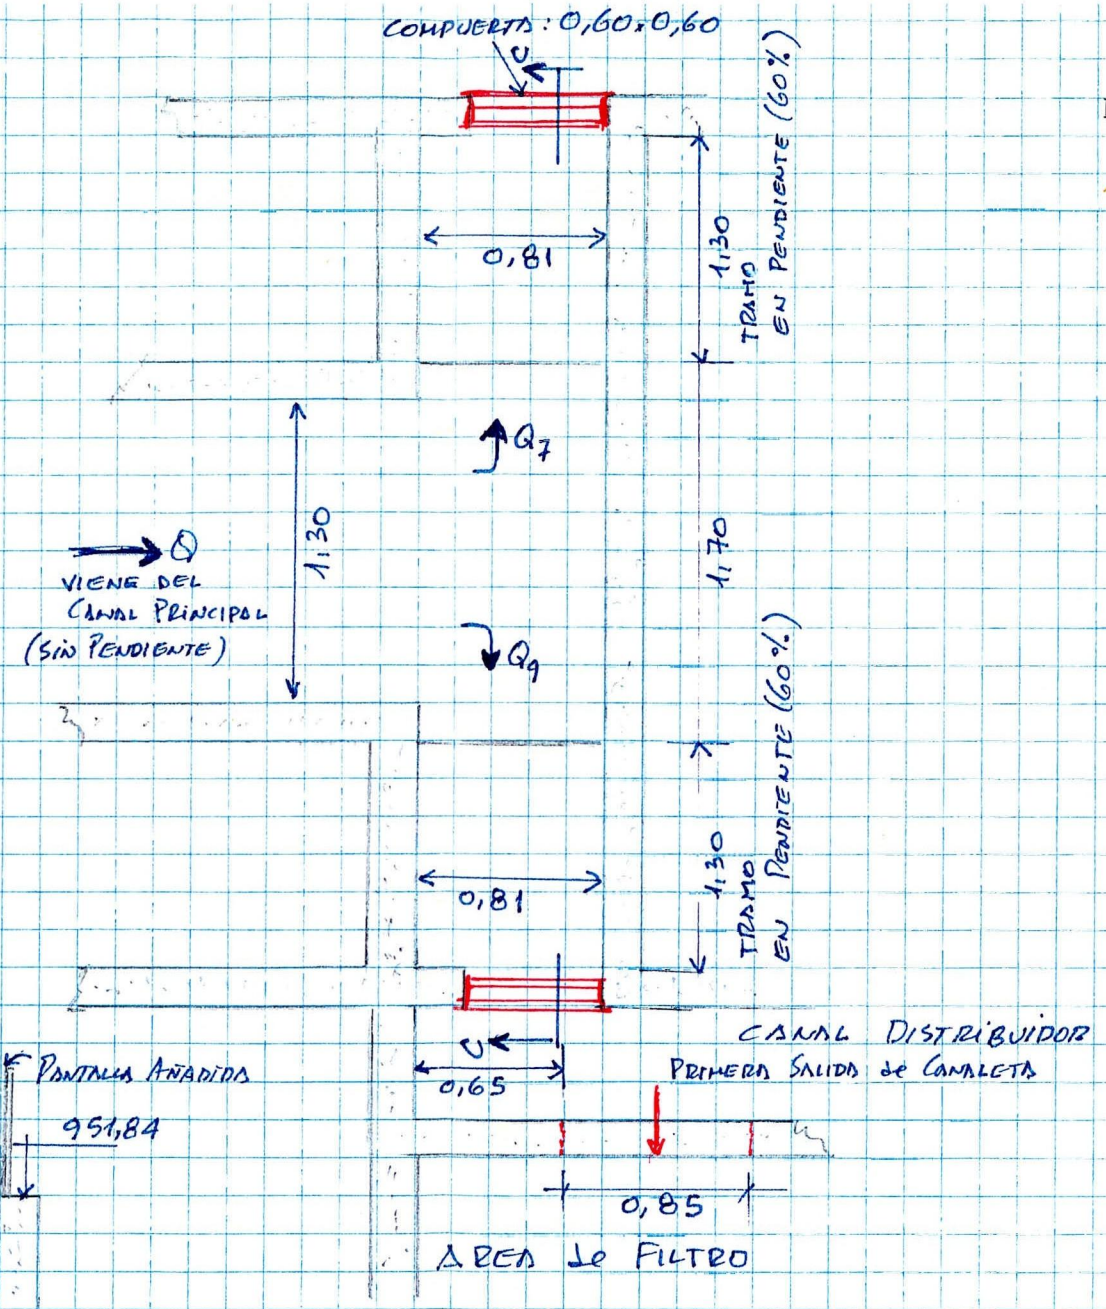 COMPUERTA: 0,60x0,60
C
0,81
1,30
TRAMO
EN PENDIENTE (60%)
Q7
1,30
Q
VIENE DEL
CANAL PRINCIPAL
(SIN PENDIENTE)
1,70
Q9
0,81
1,30
TRAMO
EN PENDIENTE (60%)
C
0,65
CANAL DISTRIBUIDOR
PRIMERA SALIDA de CANALETA
PANTALLA AÑADIDA
951,84
0,85
AREA de FILTRO